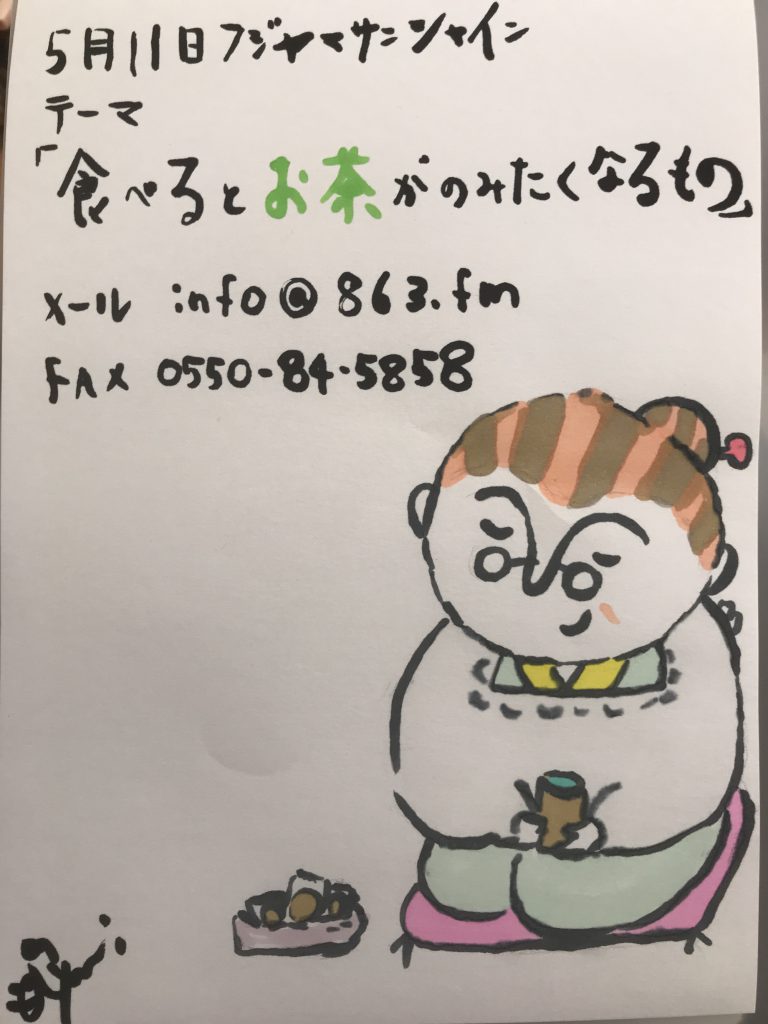 5月11日フジヤマサンシャイン
テーマ
「食べるとお茶がのみたくなるもの」
メール info@863.fm
FAX 0550-84-5858